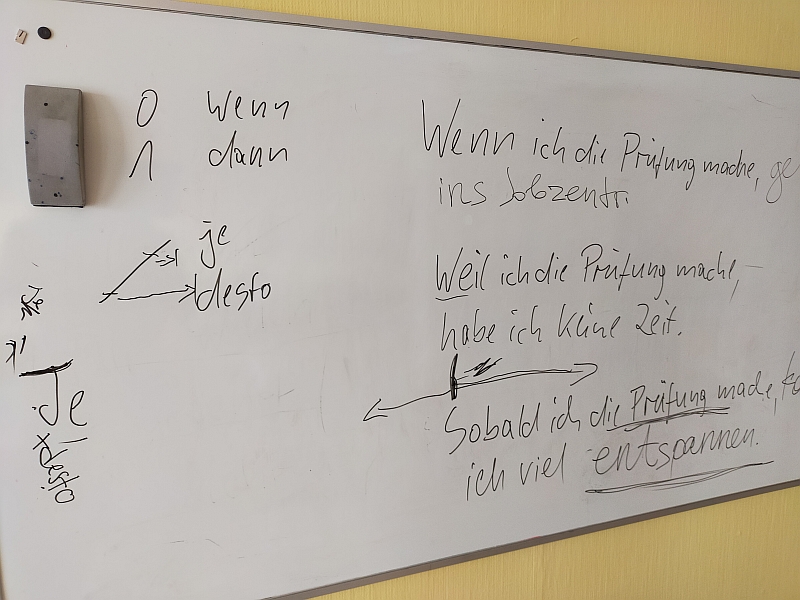 0 wenn
1 dann
je
desto
Je
desto
Wenn ich die Prüfung mache, ge
ins Jobzentr.
Weil ich die Prüfung mache,
habe ich keine Zeit.
Sobald ich die Prüfung mache,
ich viel entspannen.